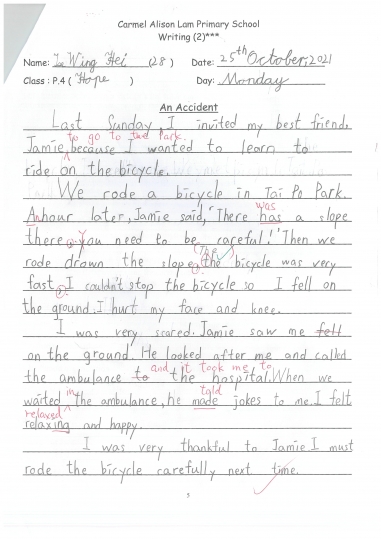 Carmel Alison Lam Primary School
Writing (2)***
Name: Le Wing Hei (28) Date: 25th October, 2021
Class : P.4 ( Hope ) Day: Monday
An Accident
Last Sunday, I invited my best friend,
to go to park.
Jamie, because I wanted to learn to
ride on the bicycle.
We rode a bicycle in Tai Po Park.
was
An hour later, Jamie said, 'There has a slope
there. You need to be careful!' Then we
The
rode drown the slope, the bicycle was very
fast. I couldn't stop the bicycle so I fell on
the ground. I hurt my face and knee.
I was very scared. Jamie saw me fell
on the ground. He looked after me and called
and it took me to
the ambulance to the hospital. When we
in told
waited the ambulance, he made jokes to me. I felt
relaxed
relaxing and happy.
I was very thankful to Jamie. I must
rode the bicycle carefully next time.